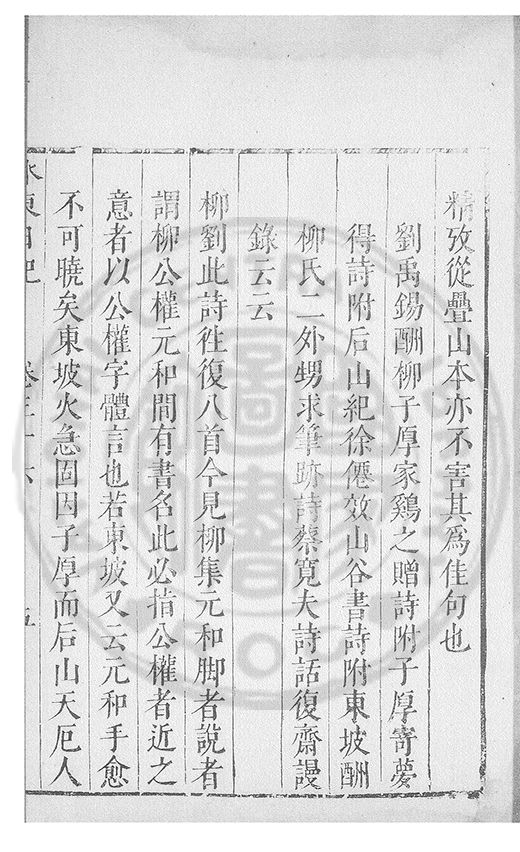 精攷從疊山本亦不害其爲佳句也
劉禹錫酬柳子厚家雞之贈詩附子厚寄夢
得詩附后山紀徐僊效山谷書詩附東坡酬
柳氏二外甥求筆跡詩蔡寬夫詩話復齋謾
錄云云
柳劉此詩徃復八首今見柳集元和脚者說者
謂柳公權元和間有書名此必指公權者近之
意者以公權字體言也若東坡又云元和手愈
不可曉矣東坡火急固因子厚而后山天厄人
水東日記 卷三十六 五